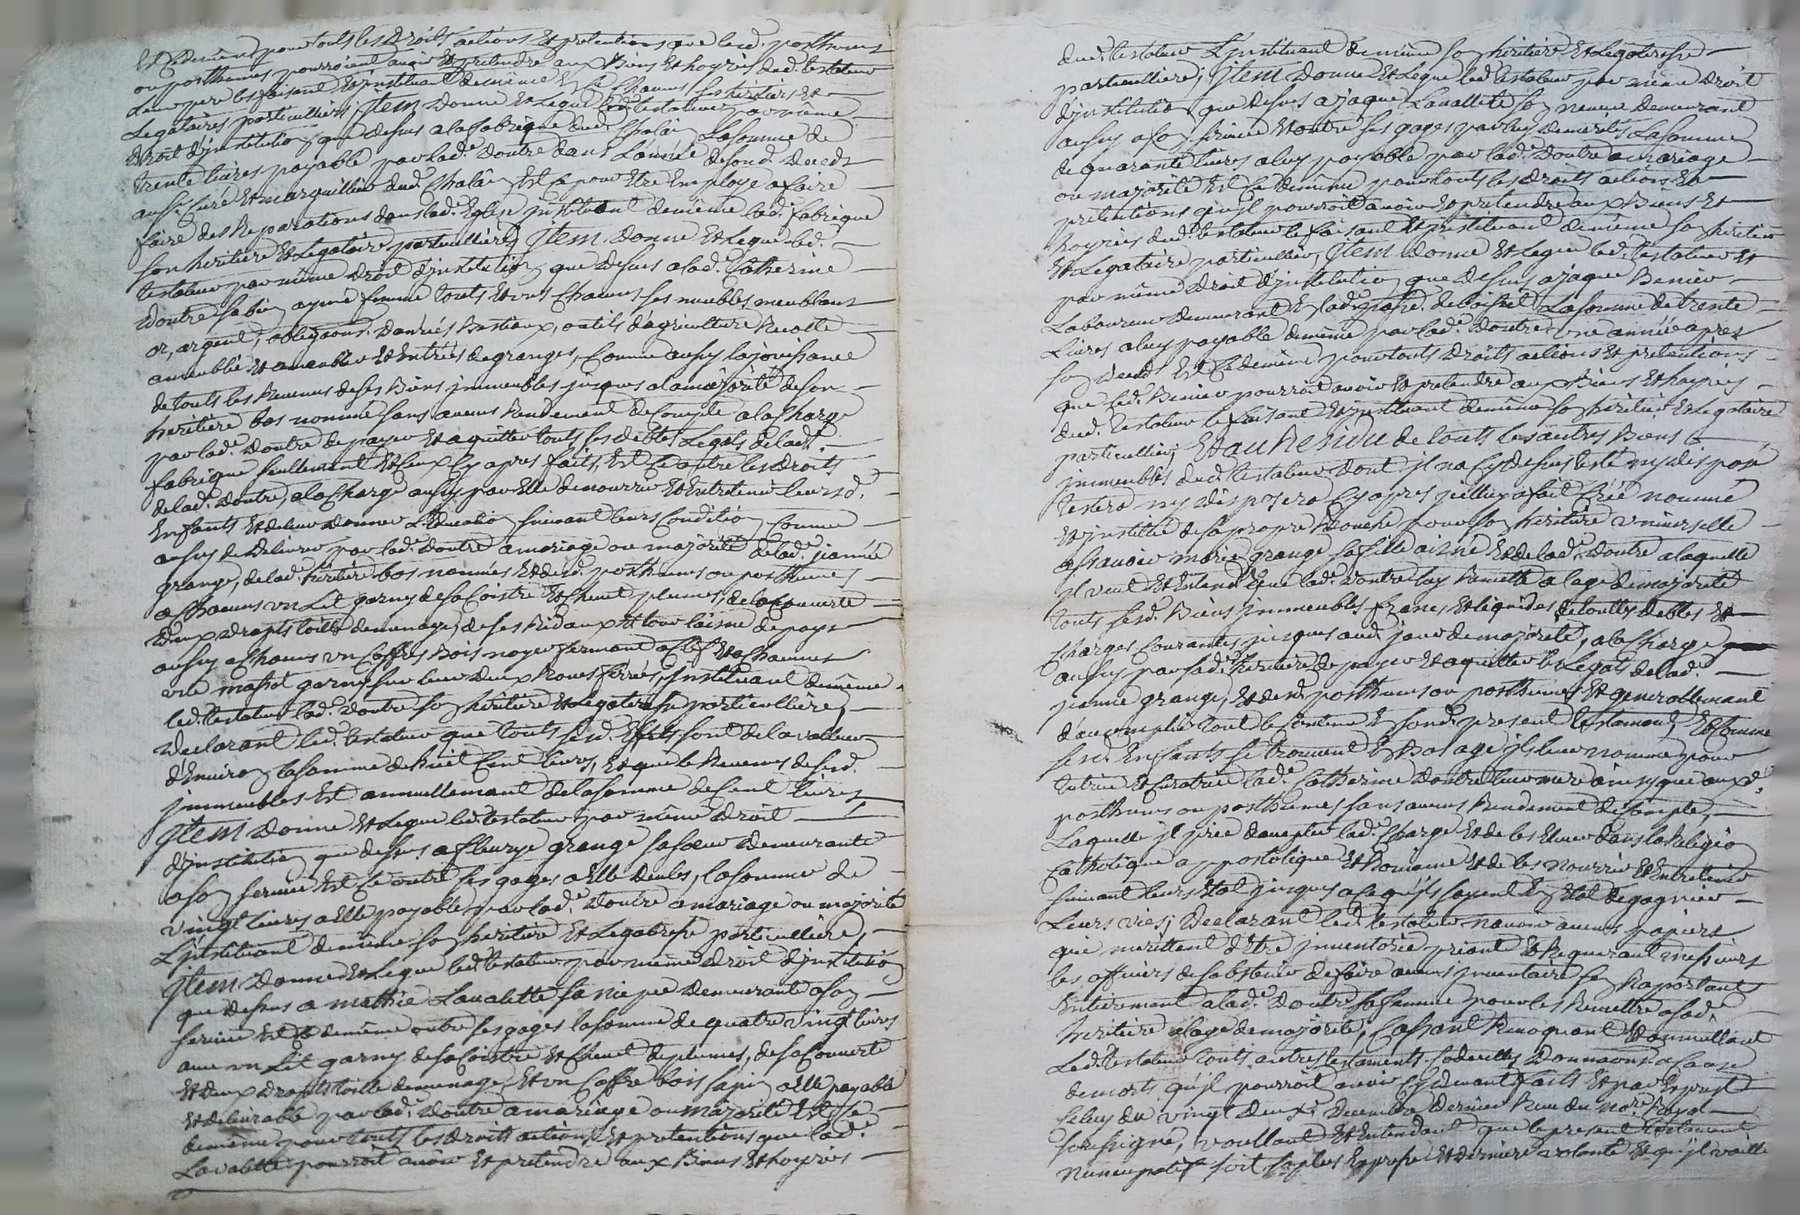 Et ce demême pour touts les droits actions et pretentions que led. posthume
ou posthumes pourroient avoir et pretendre aux biens et hoyries dud. testateur
leur pere les faisant et jnstituant demême et ce chacuns ses heritiers et
Legataires particulliers; Jtem donne et legue led. testateur par même
droit d'jnstitution que dessus a la fabrique dud. Chalain La somme de
trente livres payable par lad.e Doutre dans l'année de son d. deceds
aux s.rs curé et marguillier dud. Chalain Et ce pour etre Employé a faire
faire des Reparations dans lad. Eglise jnstituant demême lad. fabrique
son heritiere et Legataire particulliere; Jtem donne et legue led.
testateur par même droit d'jnstitution que dessus a lad. Catherine
Doutre sa bien aymée femme touts et uns chacuns ses meubles meublants
or, argent, obligations, Danrées Bestiaux, outils d'agriculture Recolte
ameublie et a meublir et Entrées de granges, Comme aussy la jouissance
de touts les Revenus de ses Biens jmmeubles jusques a la majorité de son
heritiere bas nommée sans aucuns Rendement de Compte a la charge
par lad.e Doutre de payer et aquitter touts ses debtes Legats de lad.
fabrique seullement et ceux Cy apres faits, Et ce outre les droits
de lad.e Doutre, a la Charge aussy par Elle de nourrir et Entretenir leursd.
Enfants et de leur donner L'Education suivant leurs Condition Comme
aussy de delivrer par lad.e Doutre a mariage ou majorité de lad.e jeanne
grange, de lad.e heritiere bas nommée et desd. posthumes ou posthumes
a chacuns un Lit garny de sa Coistre et chevet plumes, de sa Couverte
Deux draps toille demenage, de ses Rideaux et tour laisne de pays
aussy a Chacuns un Coffre Bois noyer fermant a Clef et a chacunes
une masse garny sur leur Deux Roues ferrés, jnstituant demême
led. testateur lad.e Doutre son heritiere et Legateresse particulliere,
Declarant led. testateur que touts sesd. Effets sont de la valleur
d'Environ la somme de huit Cent livres, Et que le Revenus de sesd.
jmmeubles Est annuellement de la somme de Cent livres
Jtem Donne et Legue led. testateur par même Droit
d'jnstitution que dessus a fleurye grange sa soeur demeurante
a son service Et ce outre ses gages a Elle deubs, la somme de
vingt livres a Elle payable par lad.e Doutre a mariage ou majorité
L'jnstituant demême son heritiere et Legateresse particulliere,
Jtem Donne et Legue led. testateur par même droit d'jnstitution
que dessus a mathie Lavalette sa niepce Demeurante a son
service Et ce demême outre ses gages la somme de quatre vingt livres
avec un Lit garny de sa Coistre et Chevet de plumes, de sa Couverte
et deux draps toille demenage Et un Coffre bois sapin a Elle payable
et delivrable par lad.e Doutre a mariage ou majorité Et ce
demême pour touts les droits actions et pretentions que lad.e
Lavalette pourroit avoir et pretendre aux Biens et hoyries
dud. testateur L'jnstituant demême son heritiere et Legateresse
particulliere, Jtem Donne et Legue led. testateur par même droit
d'jnstitution que dessus a jaque Lavallette son neveu demeurant
aussy a son service Et outre ses gages par luy demerités La somme
de quarante livres a luy payable par lad.e Doutre a mariage
ou majorité Et ce demême pour touts les droits actions et
pretentions qu'jl pourroit avoir et pretendre aux Biens et
hoyries dud. testateur le faisant et jnstituant demême son heritier
et Legataire particullier, Jtem Donne et Legue led. testateur et
par même droit d'jnstitution que dessus a jaque Benier
Laboureur demeurant En lad. parr. de boisset La somme de trente
Livres a luy payable demême par lad.e Doutre une année apres
son deceds Et ce demême pour touts droits actions et pretentions
que led. Benier pourroit avoir et pretendre aux Biens et hoyries
dud. testateur le faisant et jnstituant demême son heritier et Legataire
particullier; Et au Residu de touts les autres Biens
jmmeubles dud. testateur dont jl na Cy dessus testé ny disposé
testera ny disposera Cy apres jcelluy a fait Créé nommé
et jnstitué de sa propre Bouche pour son heritiere universelle
assavoir marie grange sa fille aisné et de lad.e Doutre a laquelle
jl veut et Entend que lad.e Doutre luy Remette a lage de majorité
touts sesd. Biens jmmeubles francs et liquides de touttes debtes et
charges Courantes jusques aud. jour de majorité, a la Charge
aussy par sad. heritiere de payer et aquitter les Legats de lad.
jeanne grange, et desd. posthumes ou posthumes et generallement
d'acomplir tout le Contenu En sond. present testament, Et Comme
sesd. Enfants se trouvent En Bas age jl leur nomme pour
tutrice et Curatrice lad.e Catherine Doutre leur mere ainsy que auxd.
posthumes ou posthumes sans aucuns Rendement de Compte,
Laquelle jl prie daccepter lad.e Charge et de les Elever dans la Religion
Catholique appostolique et Romaine et de les nourrir et Entretenir
suivant leurs Etat jusques a ce qu'jls soyent En Etat de gagner
Leurs vies; Declarant led. testateur navoir aucuns papiers
qui meritent detre jnventoriés priant et Requerant messieurs
les officiers de sabstenir de faire aucuns jnventaire sen Raportant
Entierement a lad.e Doutre sa femme pour les Remettre a sad.
heritiere a lage de majorité; Cassant Revoquant et annullant
Led. testateur touts autres testaments Codicilles Donnaons a Cause
de morts qu'jl pourroit avoir Cy devant faits Et par Exprest
Celuy du vingt deux.e Decembre dernier Reçu du no.re Royal
soussigné, voullant et Entendant que le present testament
nuncupatif soit sa plus Expresse et derniere volonté et qu'jl vaille